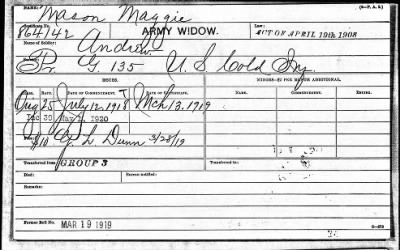 (3-P. A. S.)
Mason Maggie
Certificate No.
864142 ARMY WIDOW. ACT OF APRIL 19th 1908
Name of Soldier: Andrew
Pr. G 135 U. S. Cold Inf
ISSUES. MINORS—$2 PER MONTH ADDITIONAL.
RATE. DATE OF COMMENCEMENT. DATE OF CERTIFICATE. NAME. COMMENCEMENT.
Aug 25 July 12, 1918 Mch 13, 1919
30 May 1, 1920
$10 G L Dunn 3/28/19
Transferred from GROUP 3 Transferred to
Died: Bureau notified:
Remarks:
Former Roll No. MAR 19 1919